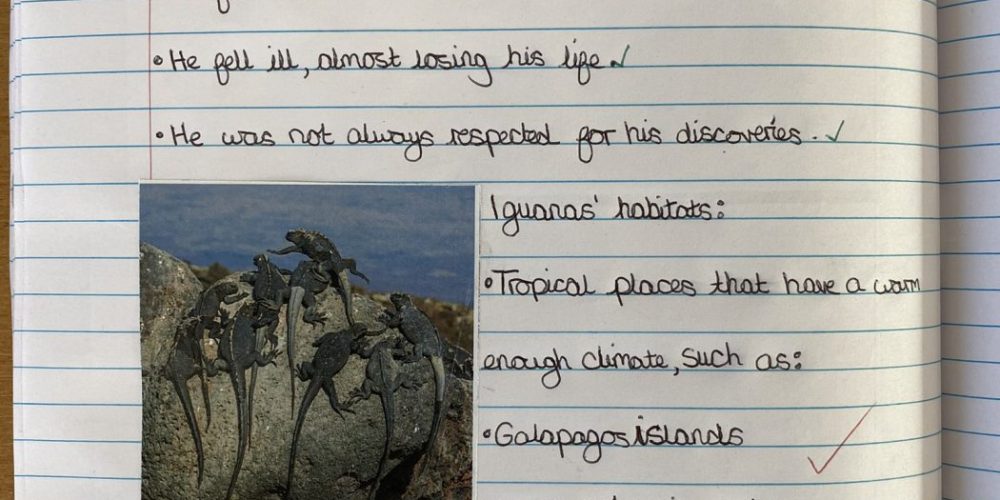 •He fell ill, almost losing his life.
•He was not always respected for his discoveries.
Iguanas' habitats:
•Tropical places that have a warm
enough climate, such as:
•Galapagos islands